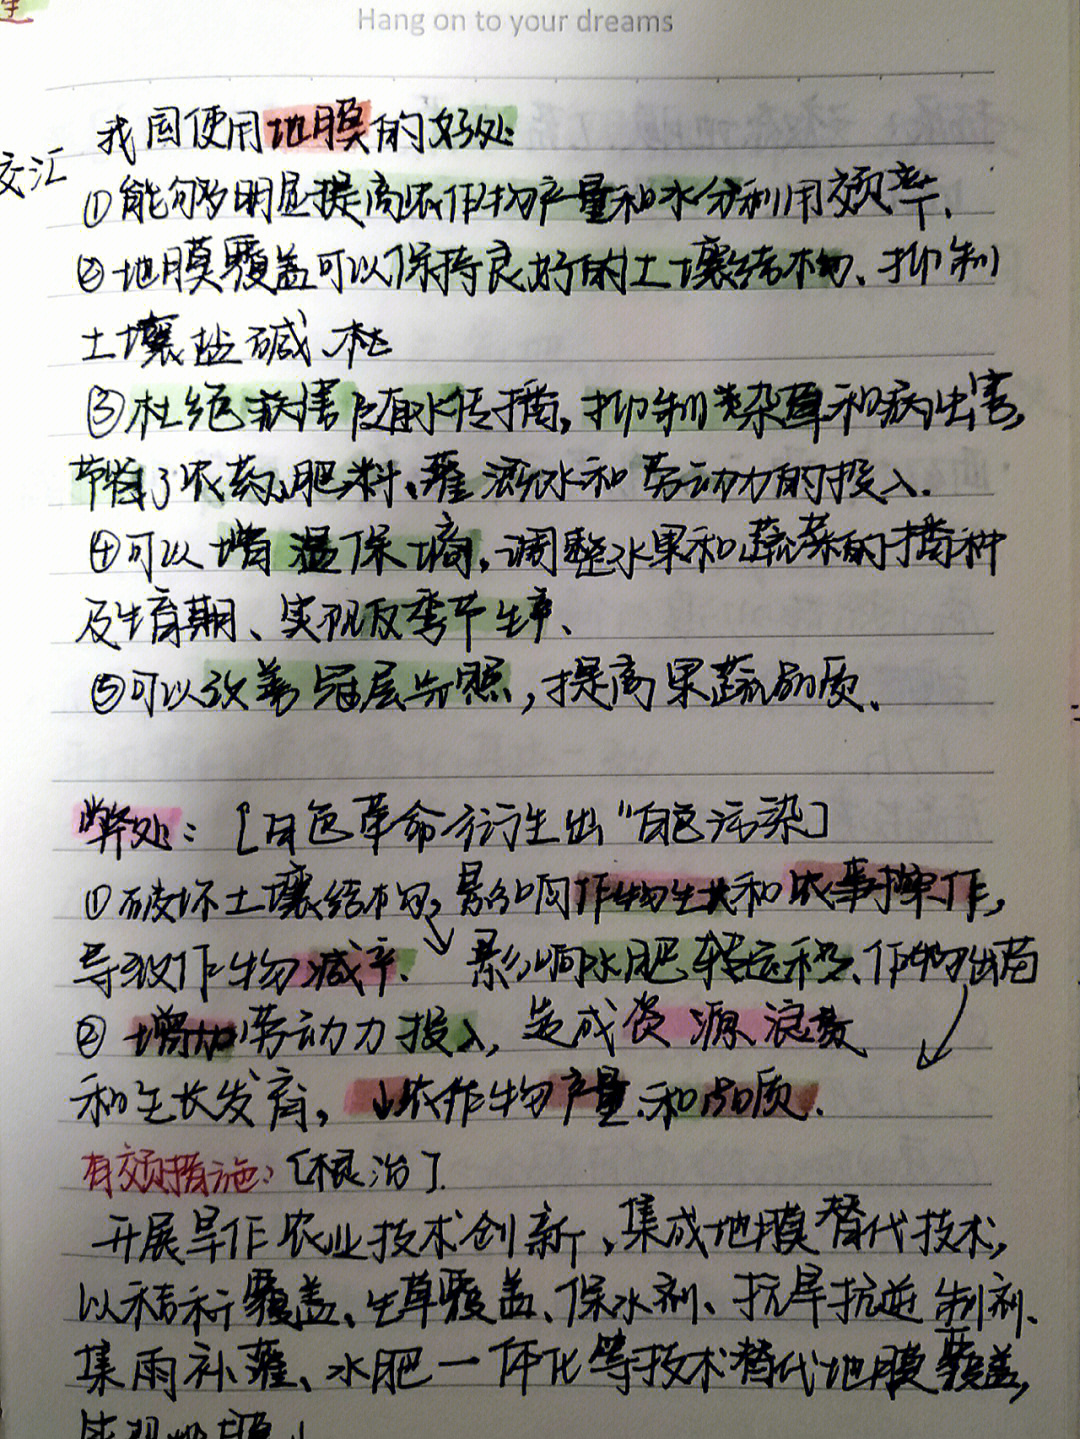 Hang on to your dreams
我国使用地膜的好处
交汇
①能够明显提高农作物产量和水分利用效率、
②地膜覆盖可以保持良好的土壤结构、抑制
土壤盐碱、杜
③杜绝病害随水传播,抑制杂草和病虫害,
节省了农药、肥料、灌溉水和劳动力的投入.
④可以增温保墒,调整水果和蔬菜的播种
及生育期、实现反季节生产、
⑤可以改善冠层光照,提高果蔬品质.
弊处:[白色革命衍生出"白色污染]
①破坏土壤结构,影响作物生长和农事操作,
导致作物减产. 影响水肥转运移、作物出苗
②增加劳动力投入,造成资源浪费
和生长发育,↓农作物产量.和品质.
有效措施:[根治].
开展旱作农业技术创新,集成地膜替代技术,
以秸秆覆盖、生草覆盖、保水剂、抗旱抗逆制剂、
集雨补灌、水肥一体化等技术替代地膜覆盖,